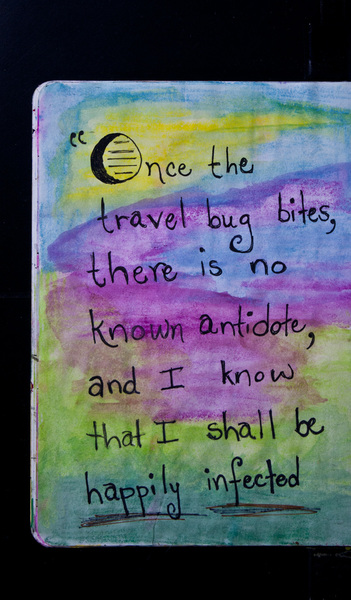 "Once the
travel bug bites,
there is no
known antidote,
and I know
that I shall be
happily infected